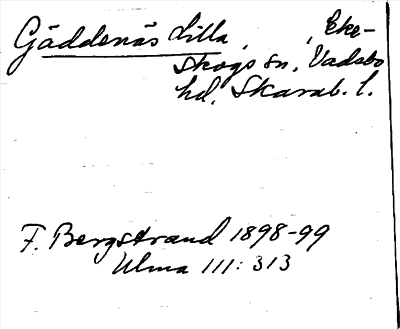 Gäddenäs Lilla, , Eke-
skogs sn, Vadsbo
hd, Skarab. l.
F. Bergstrand 1898-99
Ulma 111:313